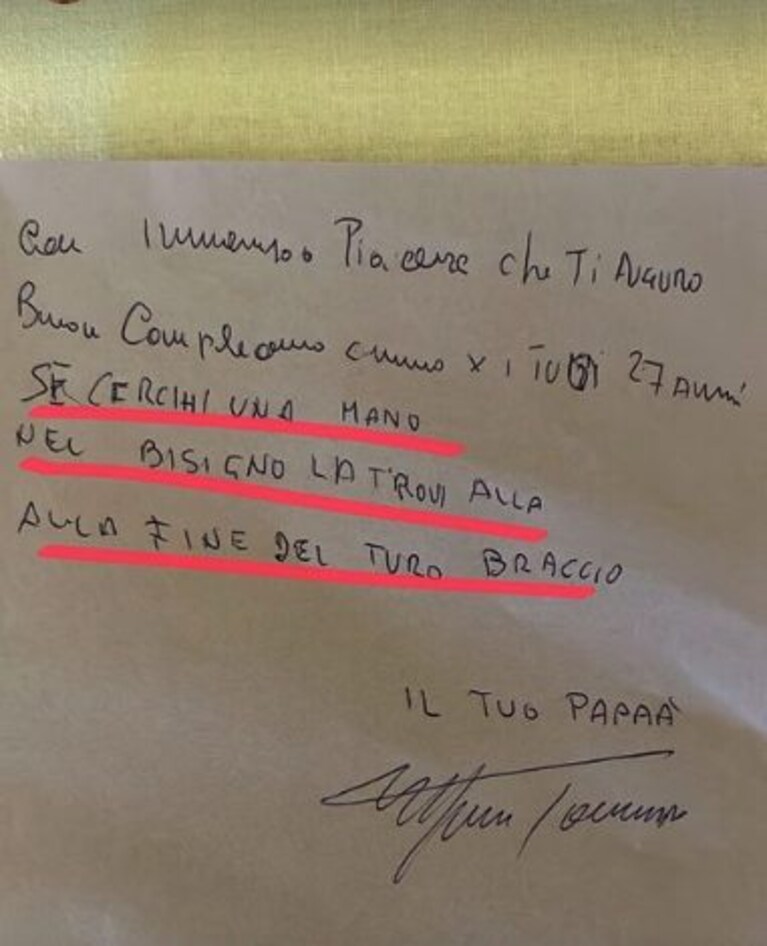 Con Immenso Piacere che Ti Auguro
Buon Compleanno x i TUOI 27 Anni
SE CERCHI UNA MANO
NEL BISIGNO LA TROVI ALLA
ALLA FINE DEL TURO BRACCIO
IL TUO PAPAA'